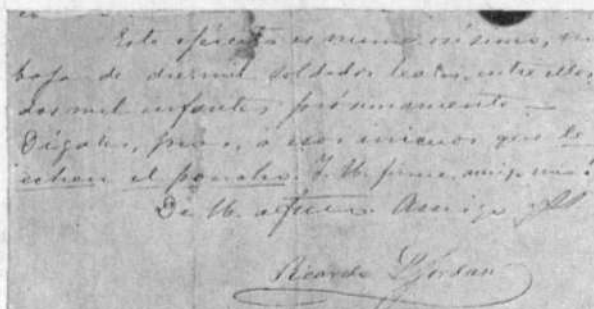 Este ejército es numerosísimo, no
baja de diez mil soldados leales, entre ellos
dos mil infantes próximamente —
Dígales, pues, a esos inicuos que le
echen el poncho. Y U. firme, amigo mio!
De U. afmo. Amigo
Ricardo L. Jordan